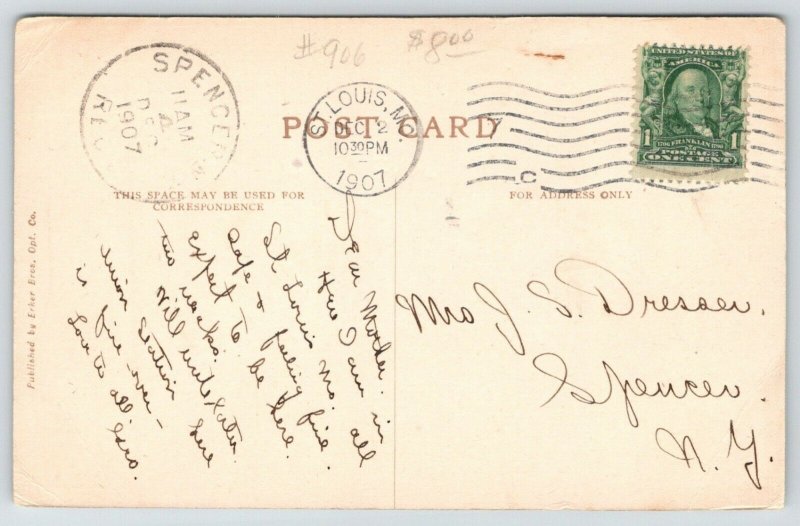 #906 $8.00
SPENCER
11 AM
4
DEC
1907
ST. LOUIS, MO.
DEC 2
10 30 PM
1907
C
UNITED STATES OF
AMERICA
1 1
1706 FRANKLIN 1790
POSTAGE
ONE CENT
POST CARD
THIS SPACE MAY BE USED FOR
CORRESPONDENCE
FOR ADDRESS ONLY
Published by Erker Bros. Opt. Co.
Dear Mother.
Here I am in
St Louis Mo. all
safe & feeling fine.
expect to be here
two weeks.
Will write later.
Union Station here
is fine over-
Love to all
Mrs J. S. Dresser.
Spencer.
N. Y.